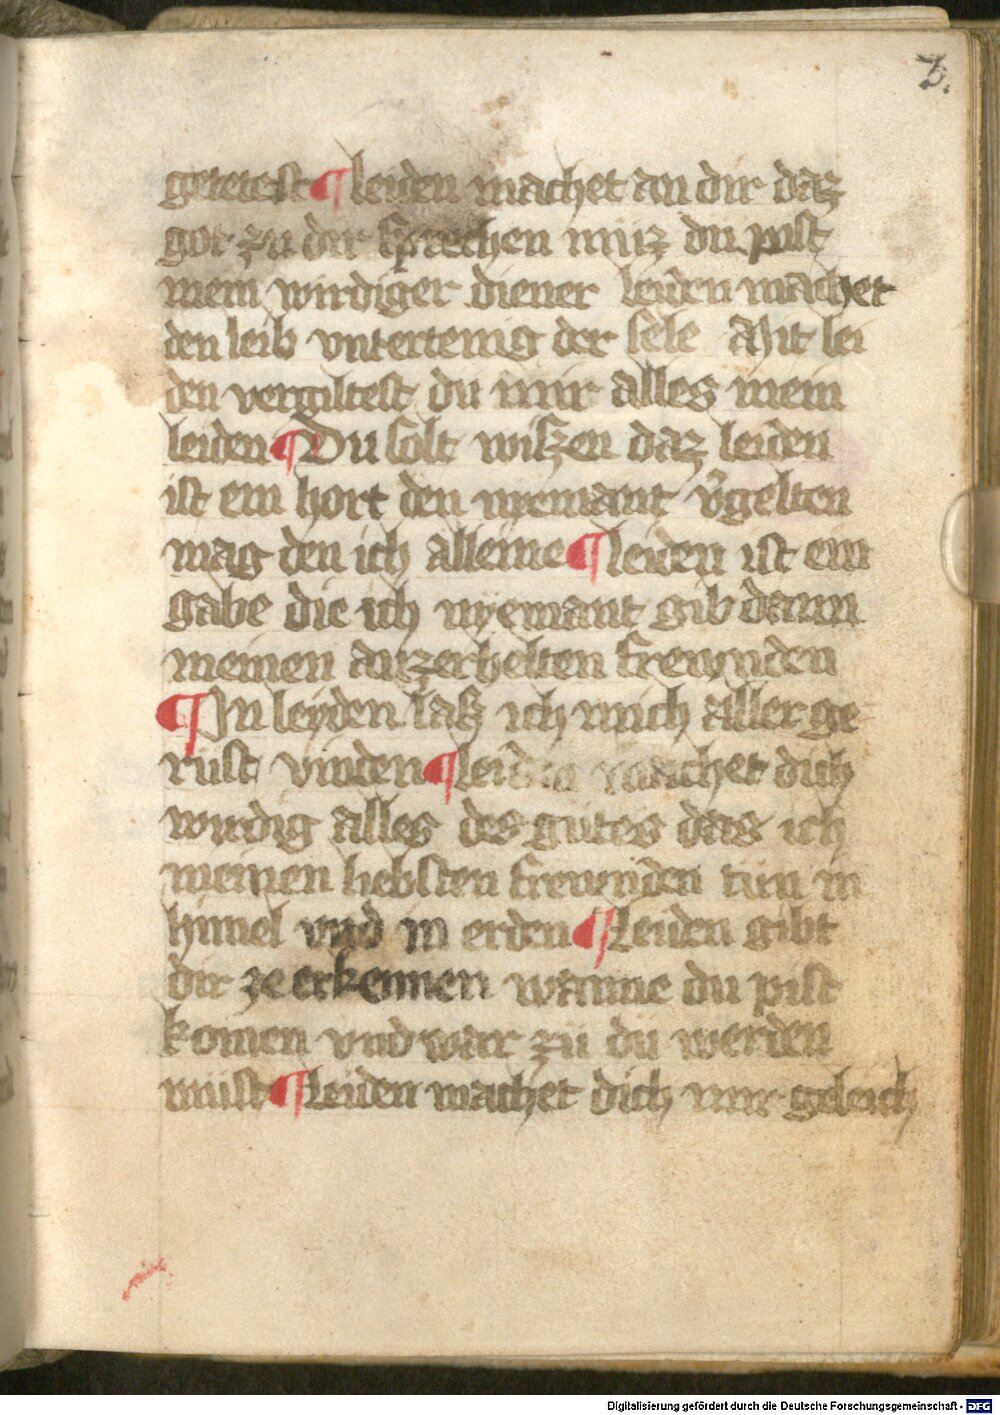 3.
getetest ¶ leiden machet an dir daz
got zu dir sprechen müz du pist
mein wirdiger diener leiden machet
den leib vntertenig der sele Mit lei
den vergiltest du mir alles mein
leiden ¶ Du solt wiszen daz leiden
ist ein hort den nyemant v̄gelten
mag den ich alleine ¶ leiden ist ein
gabe die ich nyemant gib dann
meinen auzerbelten frewnden
¶ In leyden lasz ich mich aller ge
rust vinden ¶ leiden machet dich
wirdig alles des gutes das ich
meinen liebsten frewnden tün in
himel vnd in erden ¶ Leiden gibt
dir ze erkennen wanne du pist
komen vnd war zu du werden
müst ¶ Leiden machet dich mir geleich
Digitalisierung gefördert durch die Deutsche Forschungsgemeinschaft - DFG